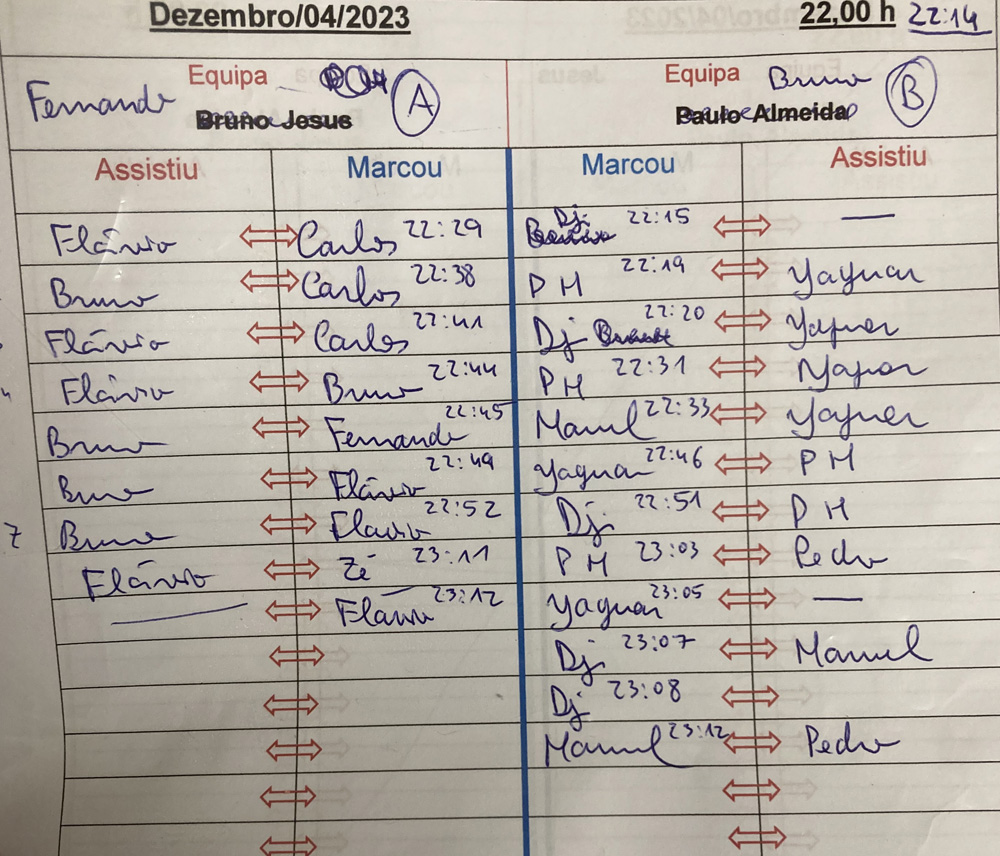 Dezembro/04/2023 22,00 h 22:14
Equipa A Equipa Bruno B
Fernando Bruno Jesus Paulo Almeida
Assistiu Marcou Marcou Assistiu
Flávio Carlos 22:29 Dj 22:15 —
Bruno Carlos 22:38 PH 22:19 Yaguar
Flávio Carlos 22:41 Dj 22:20 Yaguar
Flávio Bruno 22:44 PH 22:31 Yaguar
Bruno Fernando 22:45 Manuel 22:33 Yaguar
Bruno Flávio 22:49 Yaguar 22:46 PH
Bruno Flavio 22:52 Dj. 22:51 PH
Flávio Zé 23:11 PH 23:03 Pedro
— Flávio 23:12 Yaguar 23:05 —
Dj. 23:07 Manuel
Dj 23:08
Manuel 23:12 Pedro